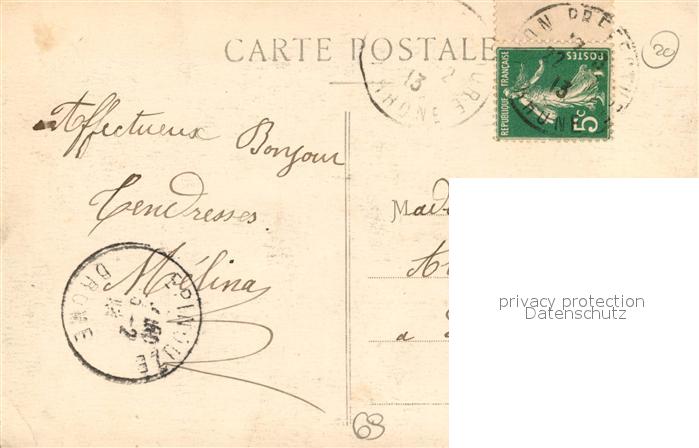 CARTE POSTALE
20
REPUBLIQUE FRANÇAISE
POSTES
5c
RHONE
13
Affectueux Bonjour
Tendresses
Mélina
EPINOUZE
DROME
Mad
A
a
privacy protection
Datenschutz
68